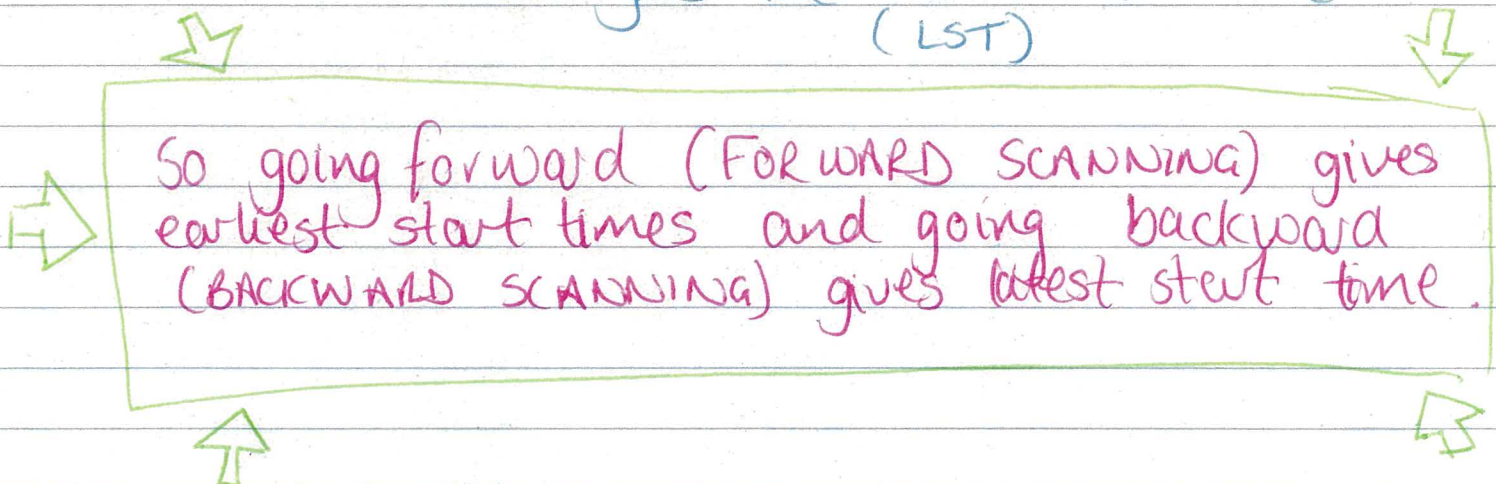 (LST)
So going forward (FORWARD SCANNING) gives
earliest start times and going backward
(BACKWARD SCANNING) gives latest start time.